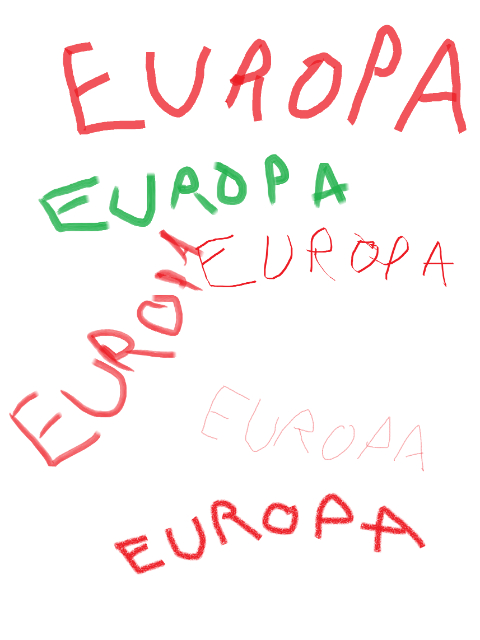 EUROPA
EUROPA
EUROPA
EUROPA
EUROPA
EUROPA